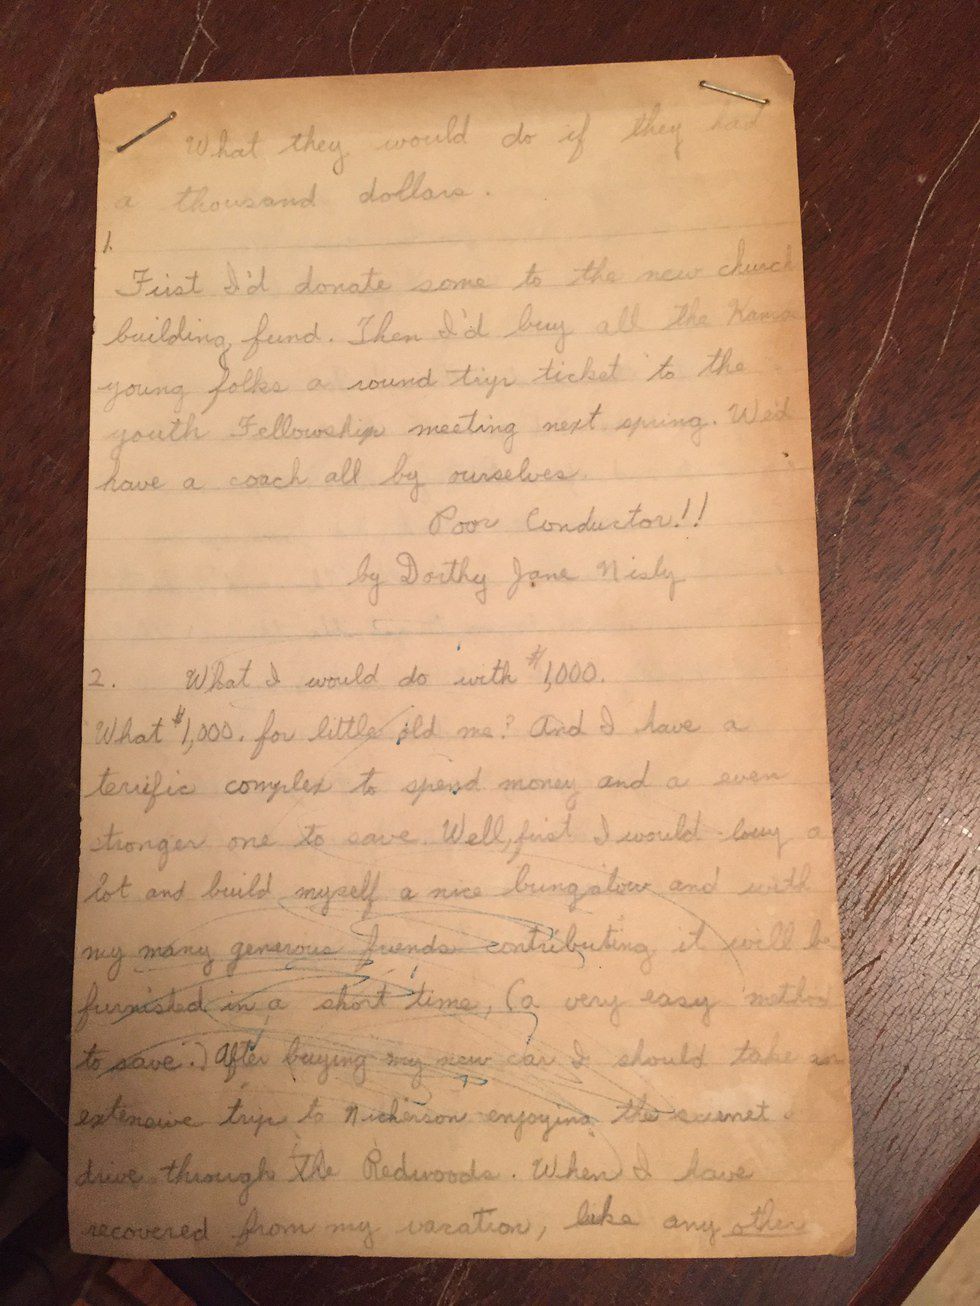 What they would do if they had
a thousand dollars.
1.
First I'd donate some to the new church
building fund. Then I'd buy all the
young folks a round trip ticket to the
youth Fellowship meeting next spring. We'd
have a coach all by ourselves.
Poor Conductor!!
by Dorthy Jane Nisly
2. What I would do with $1,000.
What $1,000. for little old me? And I have a
terrific complex to spend money and a even
stronger one to save. Well, first I would buy a
lot and build myself a nice bungalow and with
my many generous friends contributing it will be
furnished in a short time, (a very easy method
to save.) After buying my new car I should take an
extensive trip to Nickerson enjoying the
drive through the Redwoods. When I have
recovered from my vacation, like any other